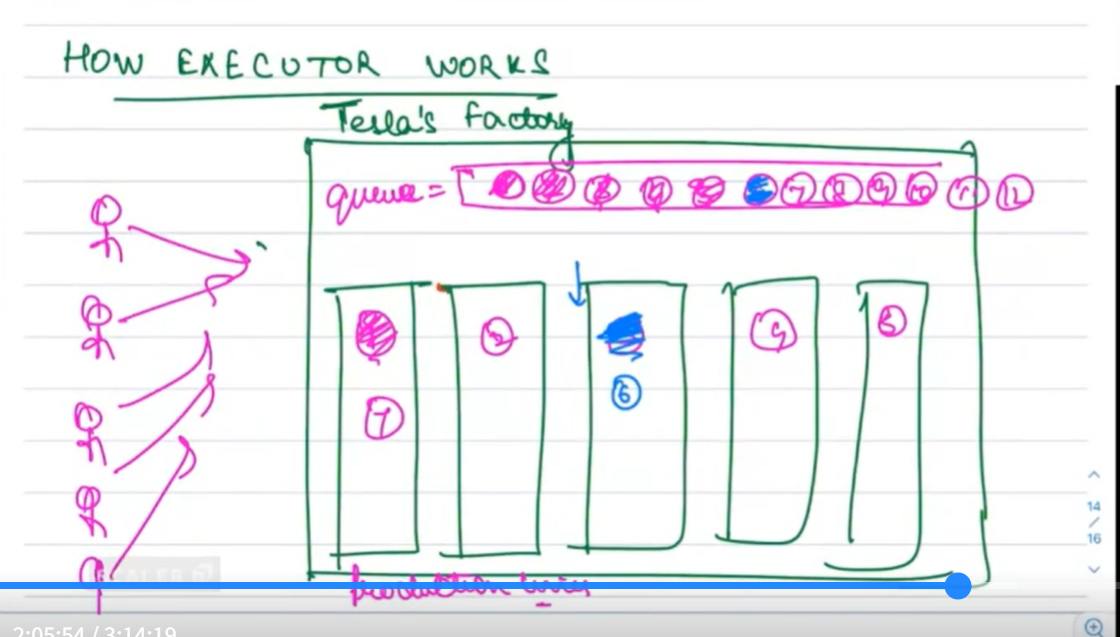 HOW EXECUTOR WORKS
Tesla's factory
queue = 1 2 3 4 5 7 8 9 10 11 12
2 4 5
7 6
production lines
14
/
16
SCALER
2:05:54 / 3:14:19